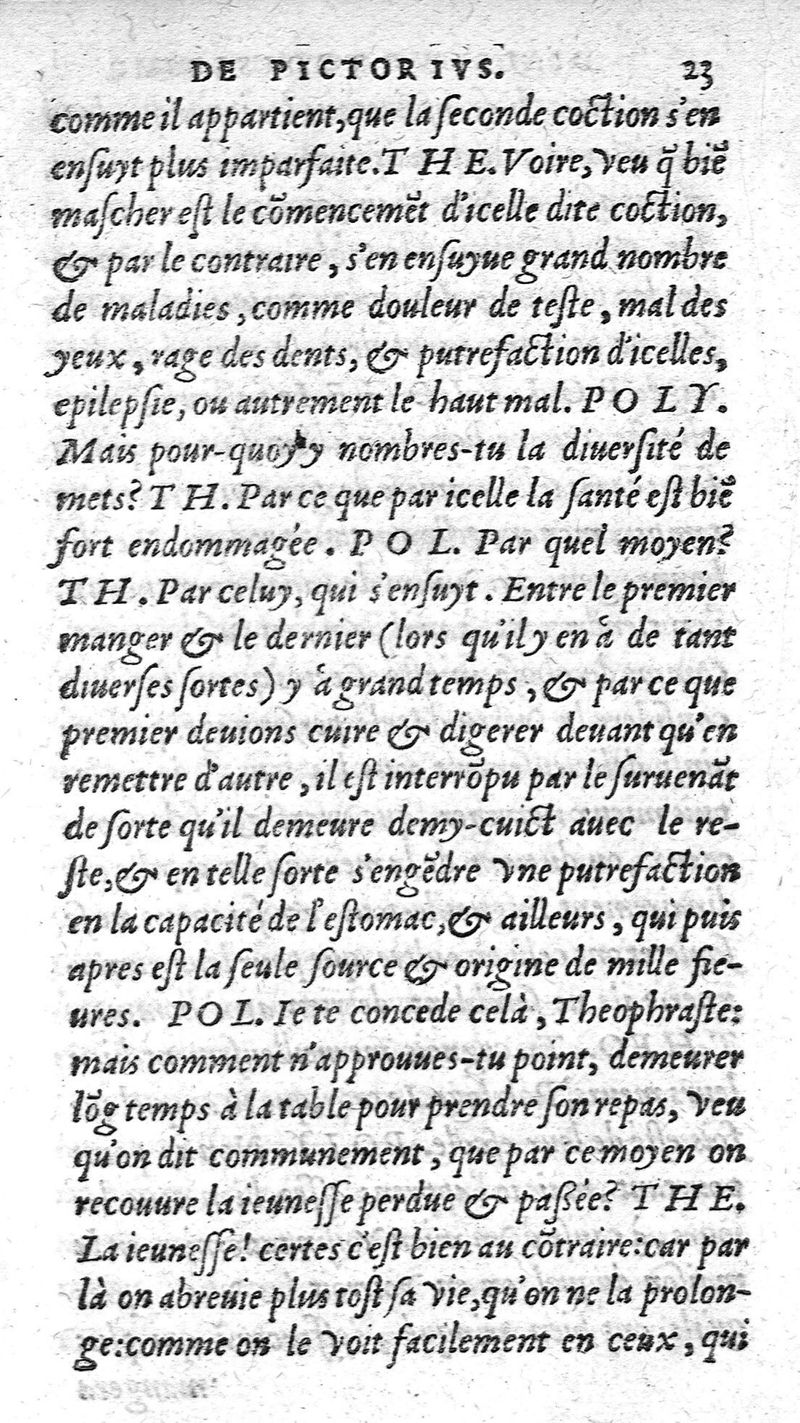 DE PICTORIVS. 23
comme il appartient, que la ſeconde coction s'en
enſuyt plus imparfaite. T H E. Voire, veu q̃ biẽ
maſcher eſt le cõmencemẽt d'icelle dite coction,
& par le contraire, s'en enſuyue grand nombre
de maladies, comme douleur de teſte, mal des
yeux, rage des dents, & putrefaction d'icelles,
epilepſie, ou autrement le haut mal. P O L Y.
Mais pour-quoy y nombres-tu la diuerſité de
mets? T H. Par ce que par icelle la ſanté eſt biẽ
fort endommagée. P O L. Par quel moyen?
T H. Par celuy, qui s'enſuyt. Entre le premier
manger & le dernier (lors qu'il y en à de tant
diuerſes ſortes) y à grand temps, & par ce que
premier deuions cuire & digerer deuant qu'en
remettre d'autre, il eſt interrõpu par le ſuruenãt
de ſorte qu'il demeure demy-cuict auec le re-
ſte, & en telle ſorte s'engẽdre vne putrefaction
en la capacité de l'eſtomac, & ailleurs, qui puis
apres eſt la ſeule ſource & origine de mille fie-
ures. P O L. Ie te concede celà, Theophraſte:
mais comment n'approuues-tu point, demeurer
lõg temps à la table pour prendre ſon repas, veu
qu'on dit communement, que par ce moyen on
recouure la ieuneſſe perdue & paßée? T H E.
La ieuneſſe! certes c'eſt bien au cõtraire: car par
là on abreuie plus toſt ſa vie, qu'on ne la prolon-
ge: comme on le voit facilement en ceux, qui